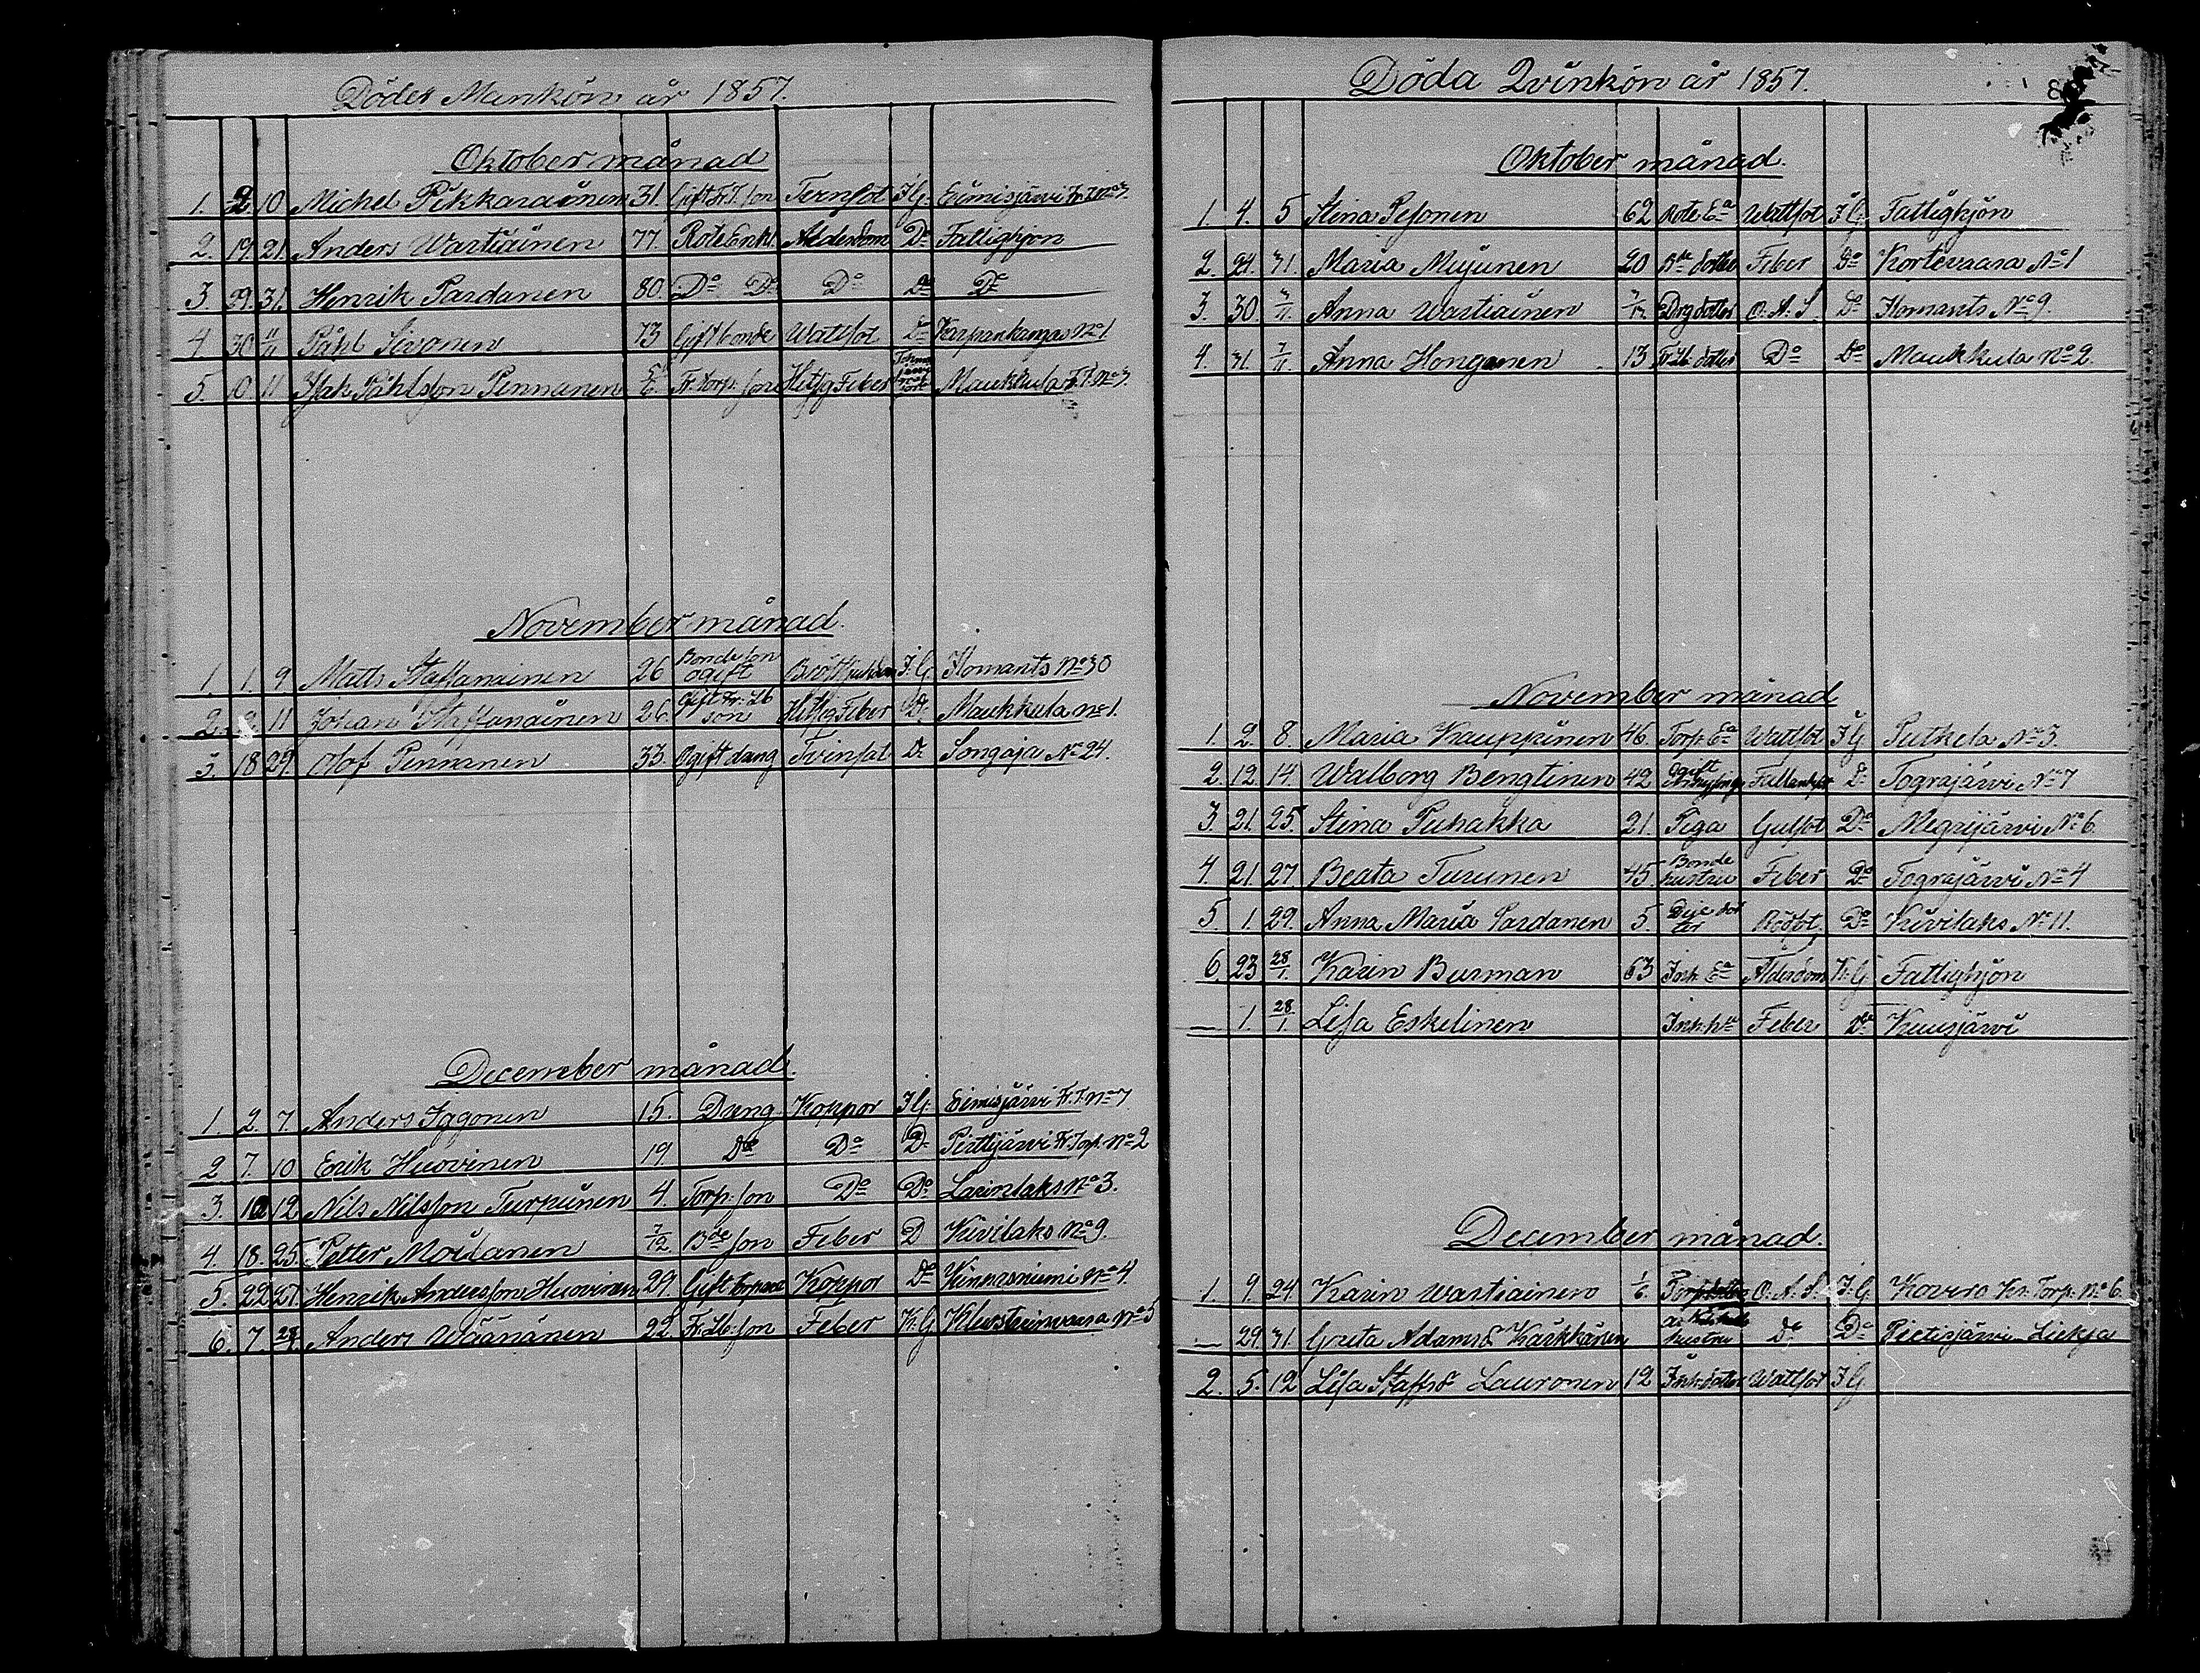 Döda Mankön år 1857.
Oktober månad
1. 2 10 Michel Pikkarainen 31. Gift Fr. T. son Ternsot I G. Eimisjärvi Fr. T. No 3.
2. 19. 21. Anders Wartiainen 77. Rote Enkl. Ålderdom Do Fattighjon
3. 29. 31. Henrik Sardanen 80. Do Do Do Do Do
4 30 Påhl Sivonen 73 Gift bonde Wattsot Do No 1
5. 10 11 Isak Påhlsson Pennanen Fr. torp. son Hitsig Feber Maukkula F. T. No 3.
November månad.
1. 1. 9 Matts Staffanainen 26 Bonde son ogift I. G Ilomants No 30
2. 2. 11 Johan Staffanainen 26. Gift Fr. Lb son Hitsig Feber Do Maukkula No 1.
3. 18 29. Olof Pennanen 33. Ogift dräng Tvinsot Do Sonkaja No 24.
December månad.
1. 2. 7 Anders Iggonen 15. Dräng Koppor I G. Eimisjärvi Fr. T. No 7
2 7. 10 Erik Huovinen 19. Do Do Do Pirttijärvi Fr. Torp. No 2
3. 10 12. Nils Nilsson Turpeinen 4. Torp. son Do Do Larinlaks No 3.
4. 18. 25. Petter Moilanen 7/12 Bde son Feber D Kivilaks No 9.
5. 22 27. Henrik Andersson Huovinen 29. Gift Torpare Koppor Do No 4.
6. 7. Anders Wäänänen 22. Fr. Lb. son Feber K. G No 5
Döda Qvinkön år 1857.
Oktober månad.
1. 4. 5 Stina Pesonen 62 Rote Ea Wattsot I G. Fattighjon
2. 24. 31. Maria Mujunen 20 Bde dotter Feber Do Kortevaara No 1
3. 30. Anna Wartiainen Drg dotter O. A. S. Do Ilomants No 9.
4. 31. Anna Honganen 13 Fr. Lb. dotter Do Do Maukkula No 2.
November månad
1. 2. 8. Maria Kauppinen 46. Torp. Ea Wattsot I G Putkela No 3.
2. 12. 14. Walborg Bengtinen 42 Ogift Fallandsot Do Tograjärvi No 7
3. 21. 25. Stina Puhakka 21. Piga Gulsot Do Megrijärvi No 6.
4. 21. 27 Beata Turunen 45. Bonde hustru Feber Do Tograjärvi No 4
5. 1. 29. Anna Maria Sardanen 5. dotter Rödsot Do Kivilaks No 11.
6. 23 28/1. Karin Burman 63 Inh. Ea Ålderdom K. G Fattighjon
— 1. 28/1. Lisa Eskelinen Inh. h. Feber Do Kuusjärvi
December månad.
1. 9. 24 Karin Wartiainen 1/6 Torp. dotter O. A. S. I. G. Kovero Kr. Torp. No 6.
— 29. 31 Greta Adamsdr Kärkkänen hustru Do Do Pielisjärvi Lieksa
2. 5. 12 Lisa Staffsdr Lauronen 12 Inh. dotter Wattsot I G.